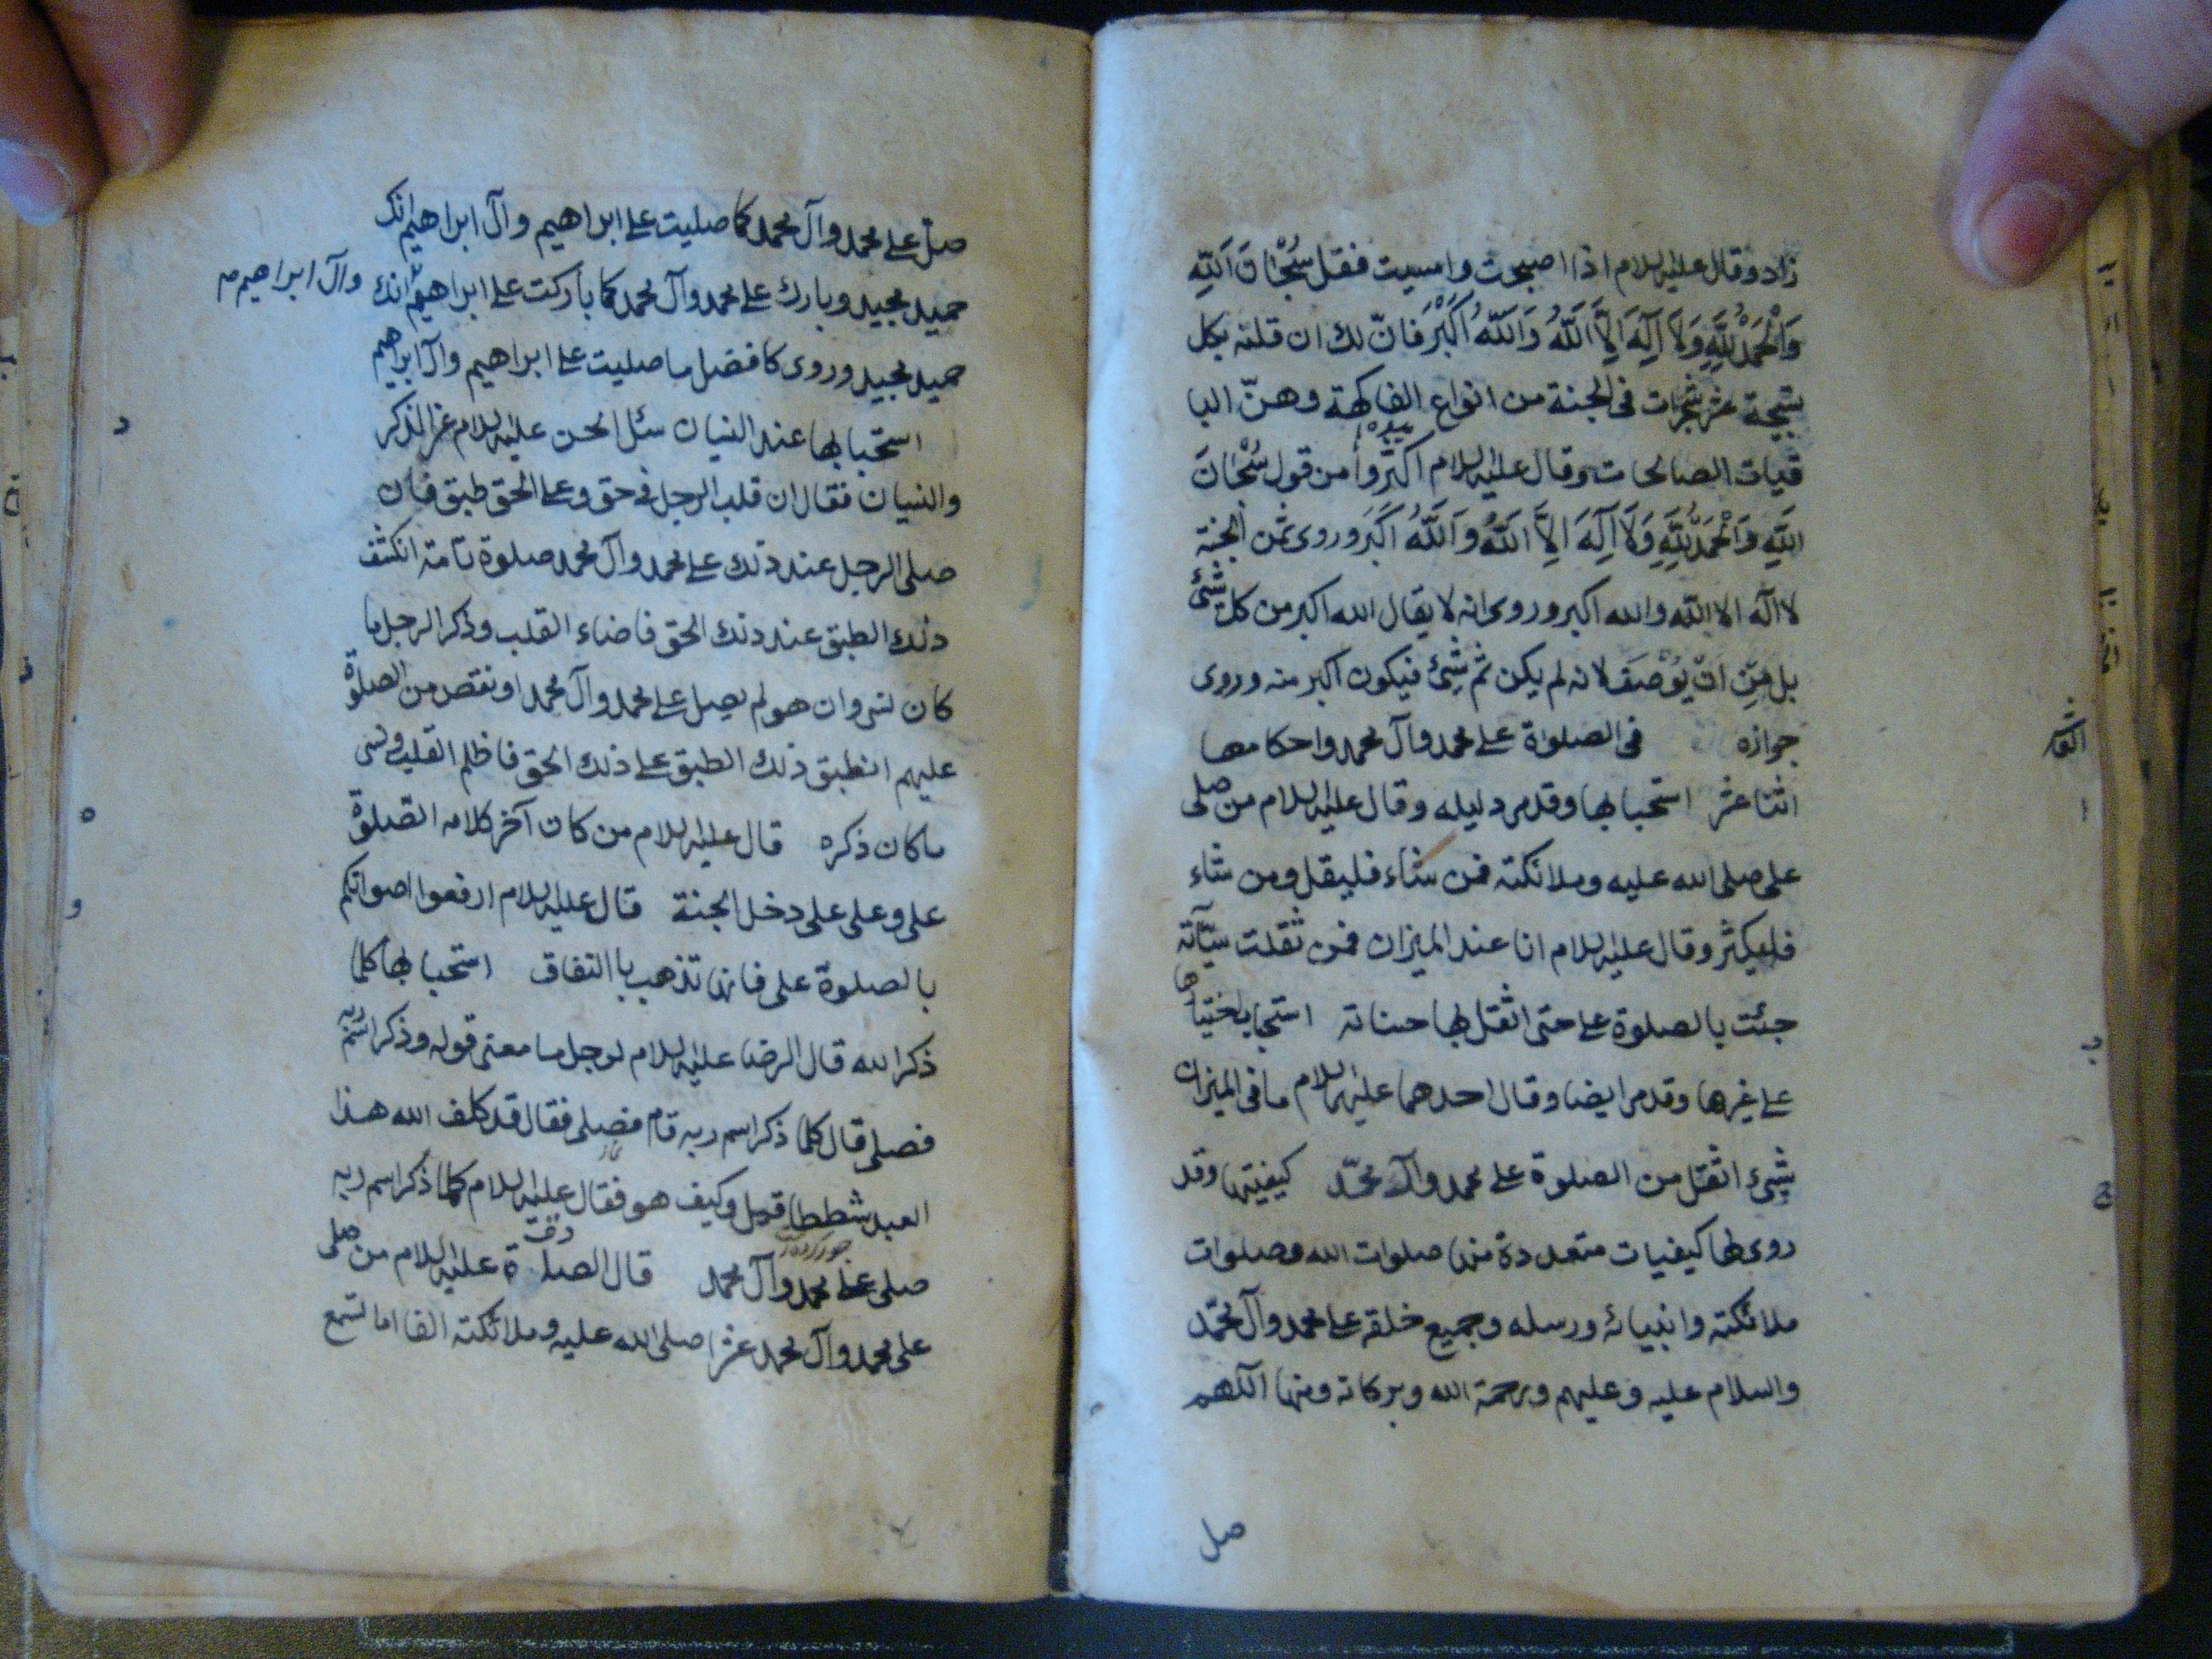 زاد وقال عليه السلام اذا اصبحت وامسيت فقل سُبْحَانَ اللّٰهِ
وَالْحَمْدُ لِلّٰهِ وَلَا اِلٰهَ اِلَّا اللّٰهُ وَاللّٰهُ اَكْبَرُ فَانّ لك ان قلته بكل
تسبيحة عشر شجرات فى الجنة من انواع الفاكهة وهنّ البا
قيات الصالحات وقال عليه السلام اكثروا من قول سُبْحَانَ
اللّٰهِ وَالْحَمْدُ لِلّٰهِ وَلَا اِلٰهَ اِلَّا اللّٰهُ وَاللّٰهُ اَكْبَر وروى ثمن الجنة
لا اله الا اللّه والله اكبر وروى انه لا يقال الله اكبر من كل شئ
بل مِنْ انْ يُوْصَفَ لانه لم يكن ثَمّ شئ فيكون اكبر منه وروى
جوازه فى الصلوة على محمد وآل محمد واحكامها
العاشر
اثنا عشر استحبابها وقد مر دليله وقال عليه السلام من صلى
ا
على صلى الله عليه وملائكته فمن شاء فليقل ومن شاء
فليكثر وقال عليه السلام انا عند الميزان فمن ثقلت سيّآته
جئت بالصلوة على حتى اثقل بها حسناته استحباب اختيارها
ب
على غيرها وقد مر ايضا وقال احدهما عليه السلام ما فى الميزان
شئ اثقل من الصلوة على محمد وآل محمّد كيفيتها وقد
ج
روى لها كيفيات متعددة منها صلوات الله وصلوات
ملائكته وانبيائه ورسله وجميع خلقه على محمد وآل محمّد
والسلام عليه وعليهم ورحمة الله وبركاته ومنها اللهم
صل
صلّ على محمد وآل محمد كما صليت على ابراهيم وآل ابراهيم انك
حميد مجيد وبارك على محمد وآل محمد كما باركت على ابراهيم انك
وآل ابراهيم
حميد مجيد وروى كافضل ما صليت على ابراهيم وآل ابراهيم
استحبابها عند النسيان سئل الحسن عليه السلام عن الذكر
د
والنسيان فقال ان قلب الرجل فى حق وعلى الحق طبق فان
صلى الرجل عند ذلك على محمد وآل محمد صلوة تامة انكشف
ذلك الطبق عند ذلك الحق فاضاء القلب وذكر الرجل ما
كان نسى وان هو لم يصل على محمد وآل محمد او نقص من الصلوة
عليهم انطبق ذلك الطبق على ذلك الحق فاظلم القلب ونسى
ما كان ذكره قال عليه السلام من كان آخر كلامه الصّلوة
ه
على وعلى على دخل الجنة قال عليه السلام ارفعوا اصواتكم
و
بالصلوة على فانها تذهب باالنفاق استحبابها كلما
ذكر الله قال الرضا عليه السلام لرجل ما معنى قوله وذكر اسم ربه
فصلى قال كلما ذكر اسم ربه قام فصلى فقال قد كلف الله هذا
العبد شططا قيل وكيف هو فقال عليه السلام كلما ذكر اسم ربه
صلى على محمد وآل محمد قال الصادق عليه السلام من صلى
على محمد وآل محمد عشرا صلى الله عليه وملائكته الفا اما تسمع